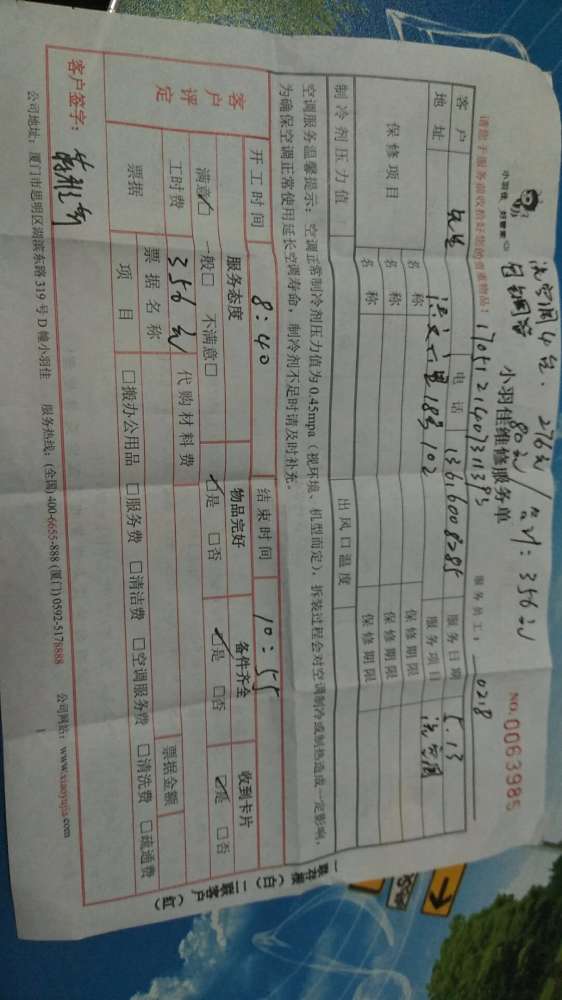 洗空调4台. 276元
80元 / 合计: 356元
小羽佳 好管家
小羽佳维修服务单
NO.0063985
1705121407311393
请您于服务前收拾好您的贵重物品!
服务员工: 0218
客户
电话 13616008285
服务日期 5.13
地址 18号102
服务项目 洗空调
保修项目
名称
保修期限
名称
保修期限
名称
保修期限
制冷剂压力值
出风口温度
空调服务温馨提示: 空调正常制冷剂压力值为0.45mpa(视环境、机型而定), 拆装过程会对空调制冷或制热造成一定影响,
为确保空调正常使用延长空调寿命, 制冷剂不足时请及时补充。
开工时间 8:40
结束时间 10:55
客户评定
服务态度
物品完好
备件齐全
收到卡片
满意☑ 一般□ 不满意□
☑是 □否
☑是 □否
☑是 □否
工时费 356元
代购材料费
票据
票据名称
票据金额
项目
□搬办公用品 □服务费 □清洁费 □空调服务费 □清洗费 □疏通费
客户签字:
公司地址: 厦门市思明区湖滨东路319号D幢小羽佳 服务热线: (全国) 400-6655-888 (厦门) 0592-5178888 公司网站: www.xiaoyujia.com
一联存根(白) 二联客户(红)